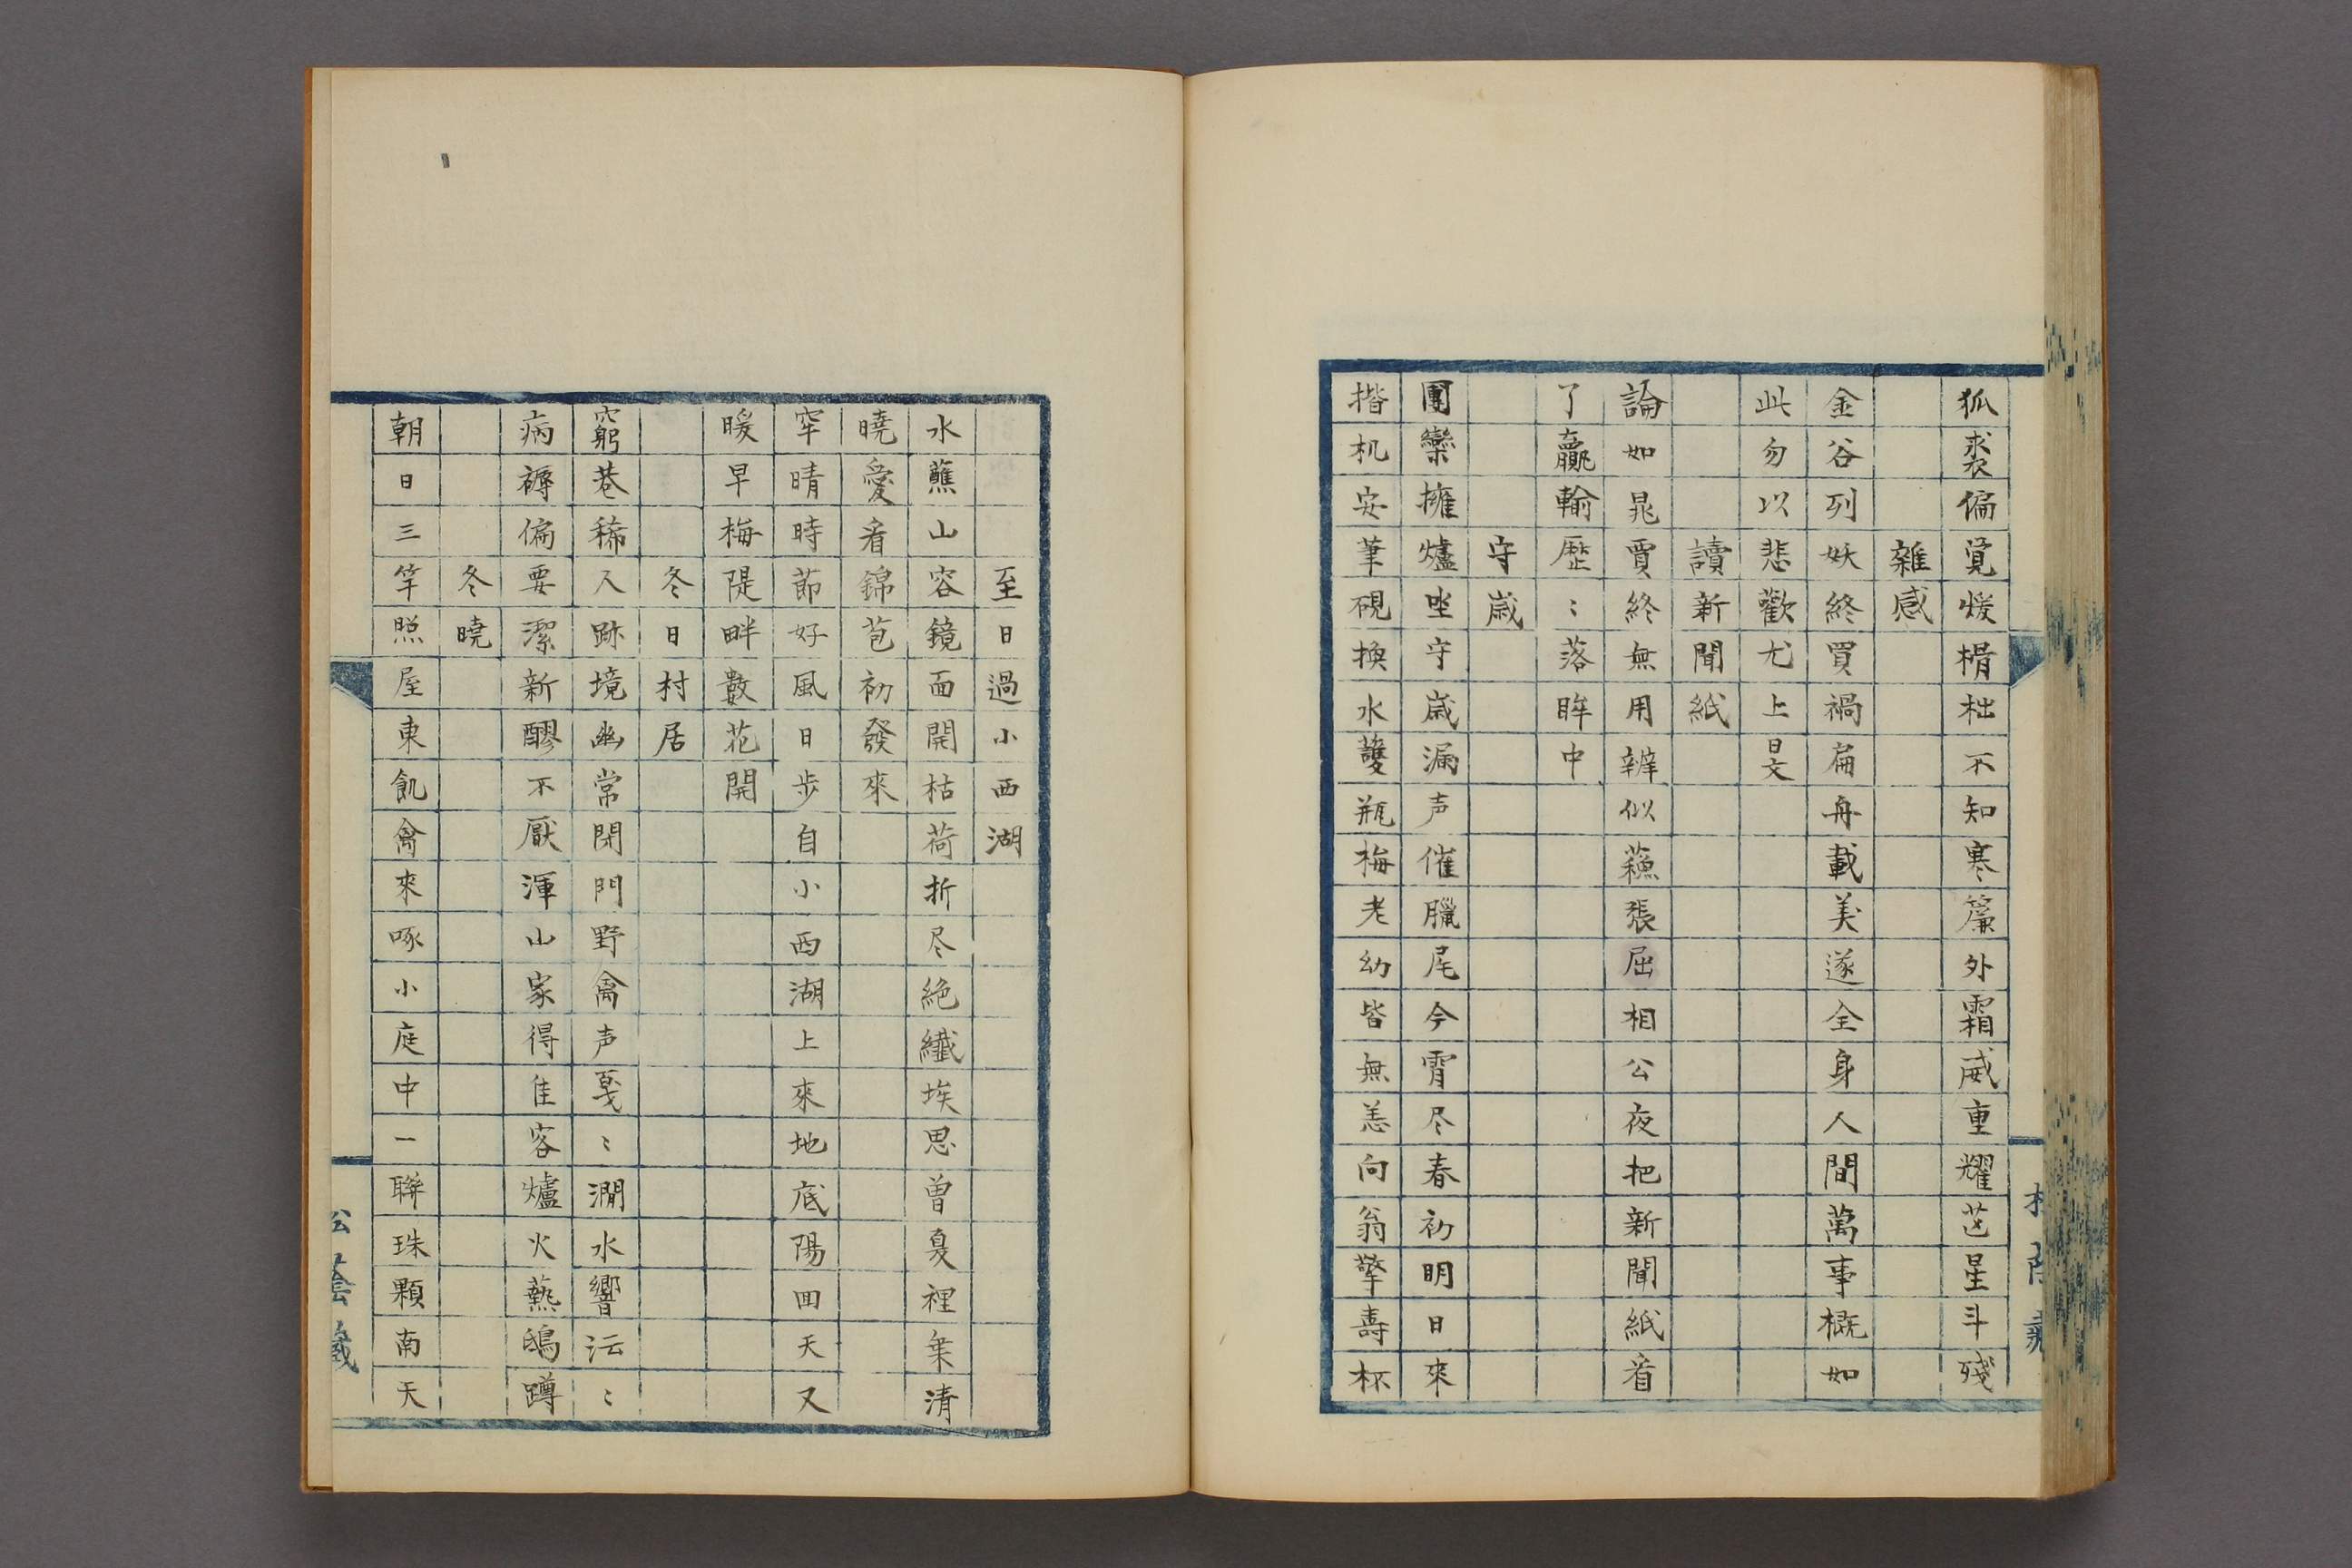 狐裘偏覚煖榾柮不知寒簾外霜威重耀芒星斗残
雜感
金谷列妖終買禍扁舟載美遂全身人間萬事概如
此勿以悲歡尤上旻
讀新聞紙
論如晁賈終無用辯似蘓張屈相公夜把新聞紙看
了贏輸歴〻落眸中
守歳
團欒擁爐坐守歳漏声催臘尾今霄尽春初明日來
揩机安筆硯換水護瓶梅老幼皆無恙向翁擎壽杯
至日過小西湖
水蘸山容鏡面開枯荷折尽絶纎埃思曽夏裡乗清
曉愛看錦苞初發來
窂晴時節好風日歩自小西湖上來地底陽回天又
暖早梅隄畔數花開
冬日村居
窮巷稀人跡境幽常閉門野禽声戞〻澗水響沄〻
病褥偏要潔新醪不厭渾山家得佳客爐火爇鴟蹲
冬曉
朝日三竿照屋東飢禽來啄小庭中一聯珠顆南天
松蔭藏